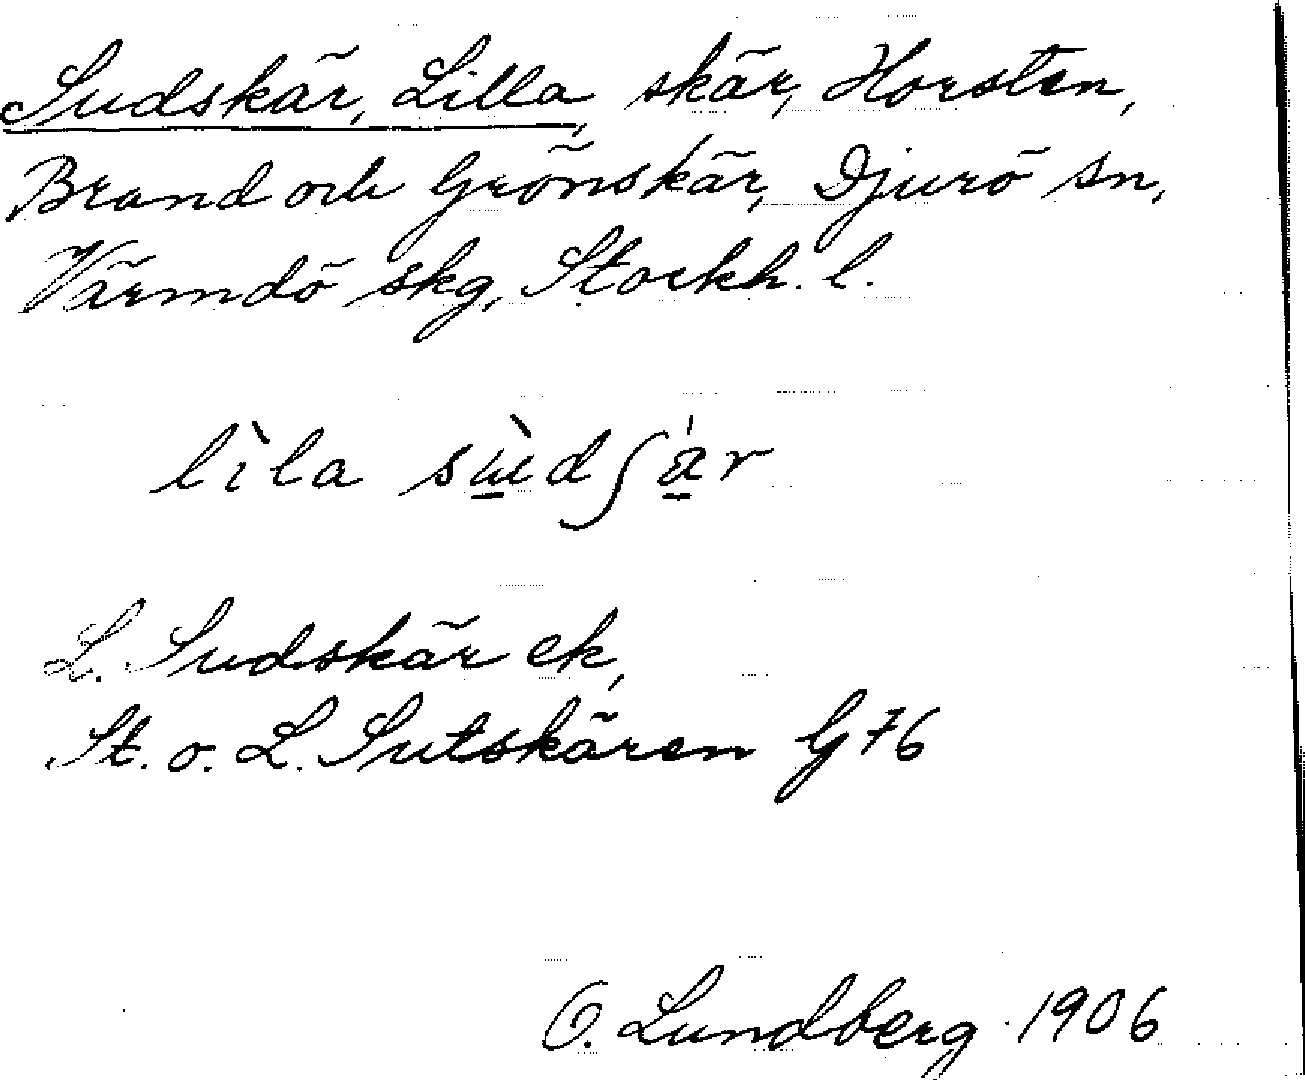 Sudskär, Lilla, skär, Horsten,
Brand och Grönskär, Djurö sn,
Värmdö skg, Stockh. l.
lìla sùdʃá̱r
L. Sudskär ek,
St. o. L. Sutskären G76
O. Lundberg 1906